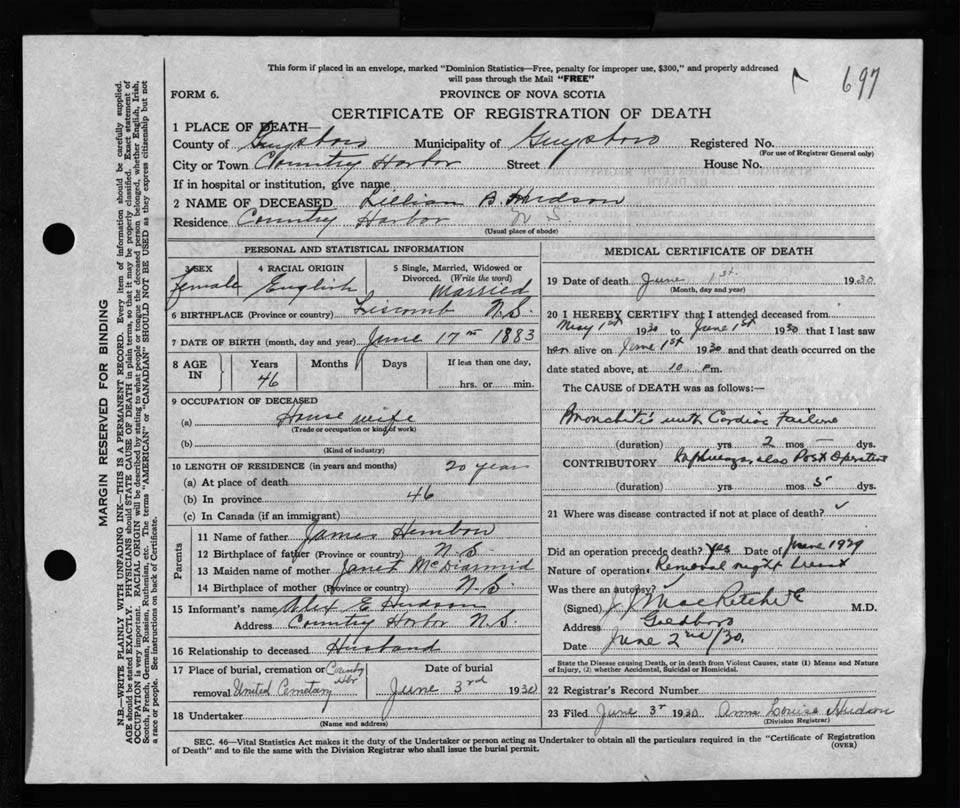 This form if placed in an envelope, marked "Dominion Statistics—Free, penalty for improper use, $300," and properly addressed
will pass through the Mail "FREE"
697
FORM 6.
PROVINCE OF NOVA SCOTIA
CERTIFICATE OF REGISTRATION OF DEATH
1 PLACE OF DEATH—
County of Guysboro Municipality of Guysboro Registered No.
(For use of Registrar General only)
City or Town Country Harbor Street House No.
If in hospital or institution, give name
2 NAME OF DECEASED Lillian B. Hudson
Residence Country Harbor N S
(Usual place of abode)
PERSONAL AND STATISTICAL INFORMATION
3 SEX 4 RACIAL ORIGIN 5 Single, Married, Widowed or
Divorced. (Write the word)
Female English Married
6 BIRTHPLACE (Province or country) Liscomb N.S.
7 DATE OF BIRTH (month, day and year) June 17th 1883
8 AGE IN Years Months Days If less than one day,
46 hrs. or min.
9 OCCUPATION OF DECEASED
(a) House wife
(Trade or occupation or kind of work)
(b)
(Kind of industry)
10 LENGTH OF RESIDENCE (in years and months)
(a) At place of death 20 years
(b) In province 46
(c) In Canada (if an immigrant)
Parents
11 Name of father James
12 Birthplace of father (Province or country) N.S
13 Maiden name of mother Janet McDiarmid
14 Birthplace of mother (Province or country) N.S.
15 Informant's name Alex E Hudson
Address Country Harbor N.S.
16 Relationship to deceased Husband
17 Place of burial, cremation or Country Hbr
removal United Cemetary
Date of burial
June 3rd 1930
18 Undertaker
(Name and address)
MEDICAL CERTIFICATE OF DEATH
19 Date of death June 1st. 1930
(Month, day and year)
20 I HEREBY CERTIFY that I attended deceased from
May 1st 1930 to June 1st 1930 that I last saw
her alive on June 1st 1930 and that death occurred on the
date stated above, at 10 m.
The CAUSE of DEATH was as follows:—
Bronchitis with Cardiac Failure
(duration) yrs 2 mos — dys.
CONTRIBUTORY also Post Operative
(duration) yrs mos 5 dys.
21 Where was disease contracted if not at place of death?
Did an operation precede death? Yes Date of June 1929
Nature of operation Removal right breast
Was there an autopsy?
(Signed) J. J. MacRitchie M.D.
Address Goldboro
Date June 2nd/30.
State the Disease causing Death, or in death from Violent Causes, state (1) Means and Nature
of Injury, (2) whether Accidental, Suicidal or Homicidal.
22 Registrar's Record Number
23 Filed June 3r 1930 Anna Louise Hudson
(Division Registrar)
SEC. 46—Vital Statistics Act makes it the duty of the Undertaker or person acting as Undertaker to obtain all the particulars required in the "Certificate of Registration
of Death" and to file the same with the Division Registrar who shall issue the burial permit.
(OVER)
MARGIN RESERVED FOR BINDING
N.B.—WRITE PLAINLY WITH UNFADING INK—THIS IS A PERMANENT RECORD. Every item of information should be carefully supplied.
AGE should be stated EXACTLY. PHYSICIANS should STATE CAUSE OF DEATH in plain terms, so that it may be properly classified. Exact statement of
OCCUPATION is very important. RACIAL ORIGIN will be described by stating to what people or tongue the deceased person belonged, whether English, Irish,
Scotch, French, German, Russian, Ruthenian, etc. The terms "AMERICAN" or "CANADIAN" SHOULD NOT BE USED as they express citizenship but not
a race or people. See instructions on back of Certificate.